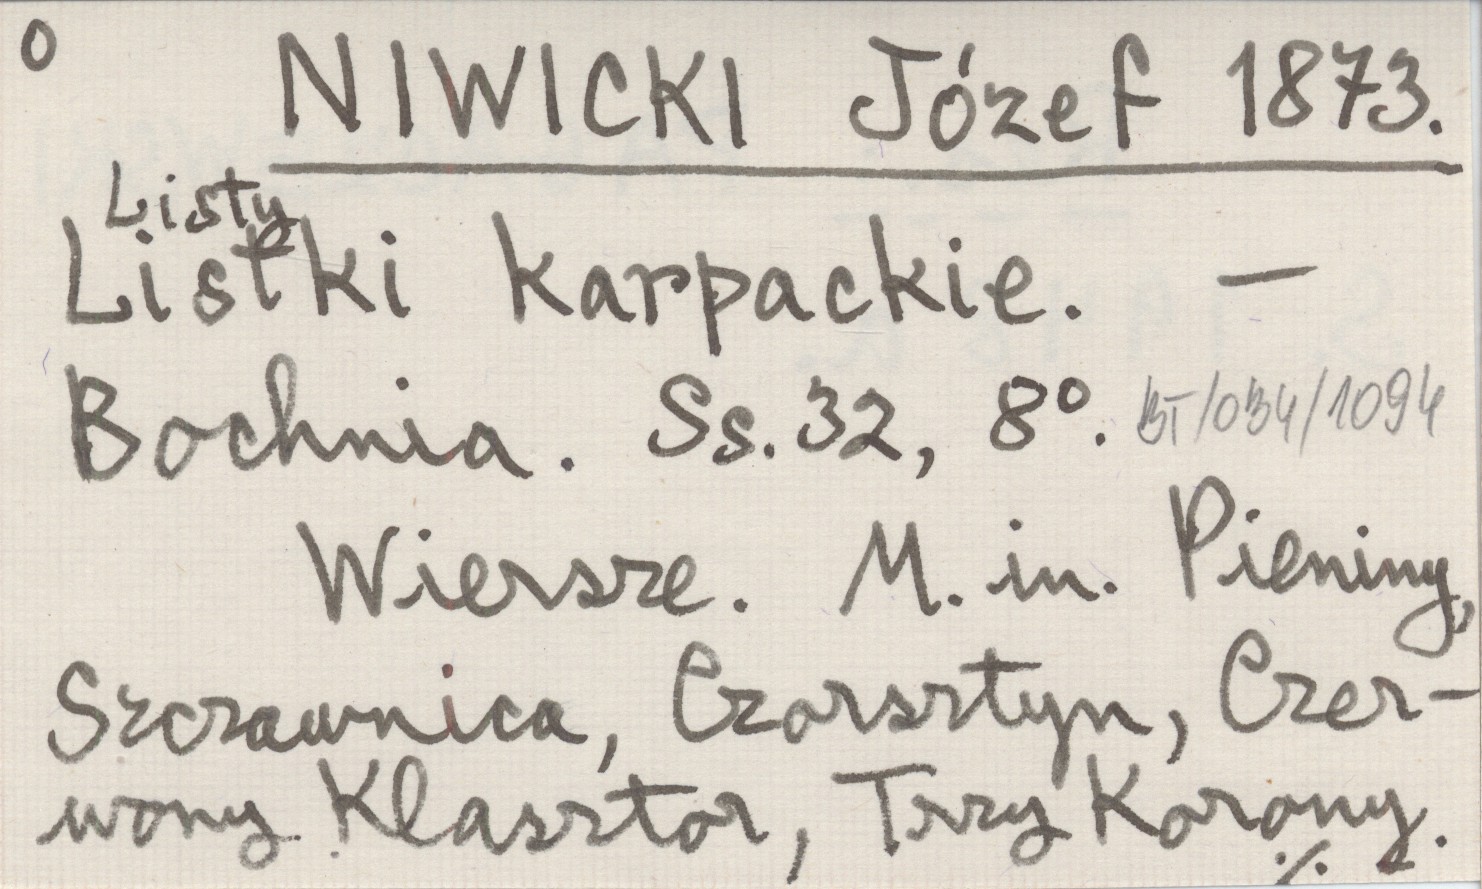 0 NIWICKI Józef 1873.
Listy
Listki karpackie. —
Bochnia. Ss. 32, 8°. BT/034/1094
Wiersze. M. in. Pieniny,
Szczawnica, Czorsztyn, Czer-
wony Klasztor, Trzy Korony.
./.